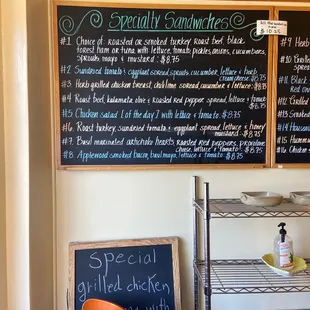 Specialty Sandwiches
#1 Choice of roasted or smoked turkey, roast beef, black
forest ham or tuna with lettuce, tomato, pickles, onions, cucumbers,
Sprouts, mayo & mustard. $8.75
#2 Sundried tomato & eggplant spread, sprouts, cucumber, lettuce &
cream cheese $8.75
#3 Herb grilled chicken breast, chili lime spread, cucumber & lettuce $8.75
#4 Roast beef, kalamata olive & roasted red pepper spread, lettuce $8.75
#5 Chicken salad of the day with lettuce & tomato. $8.75
#6 Roast turkey, sundried tomato & eggplant spread, lettuce & honey
mustard $8.75
#7 Basil marinated artichoke hearts, Roasted red peppers, provolone
cheese, lettuce & tomato $8.75
#8 Applewood smoked bacon, basil mayo, lettuce & tomato $8.75
#9 Hon
#10 Grilled
Spread
#11 Black
#12 Grilled
#13 Smoked
#14
#15 Hummu
#16 Chicken
$10.25
Special
grilled chicken
with